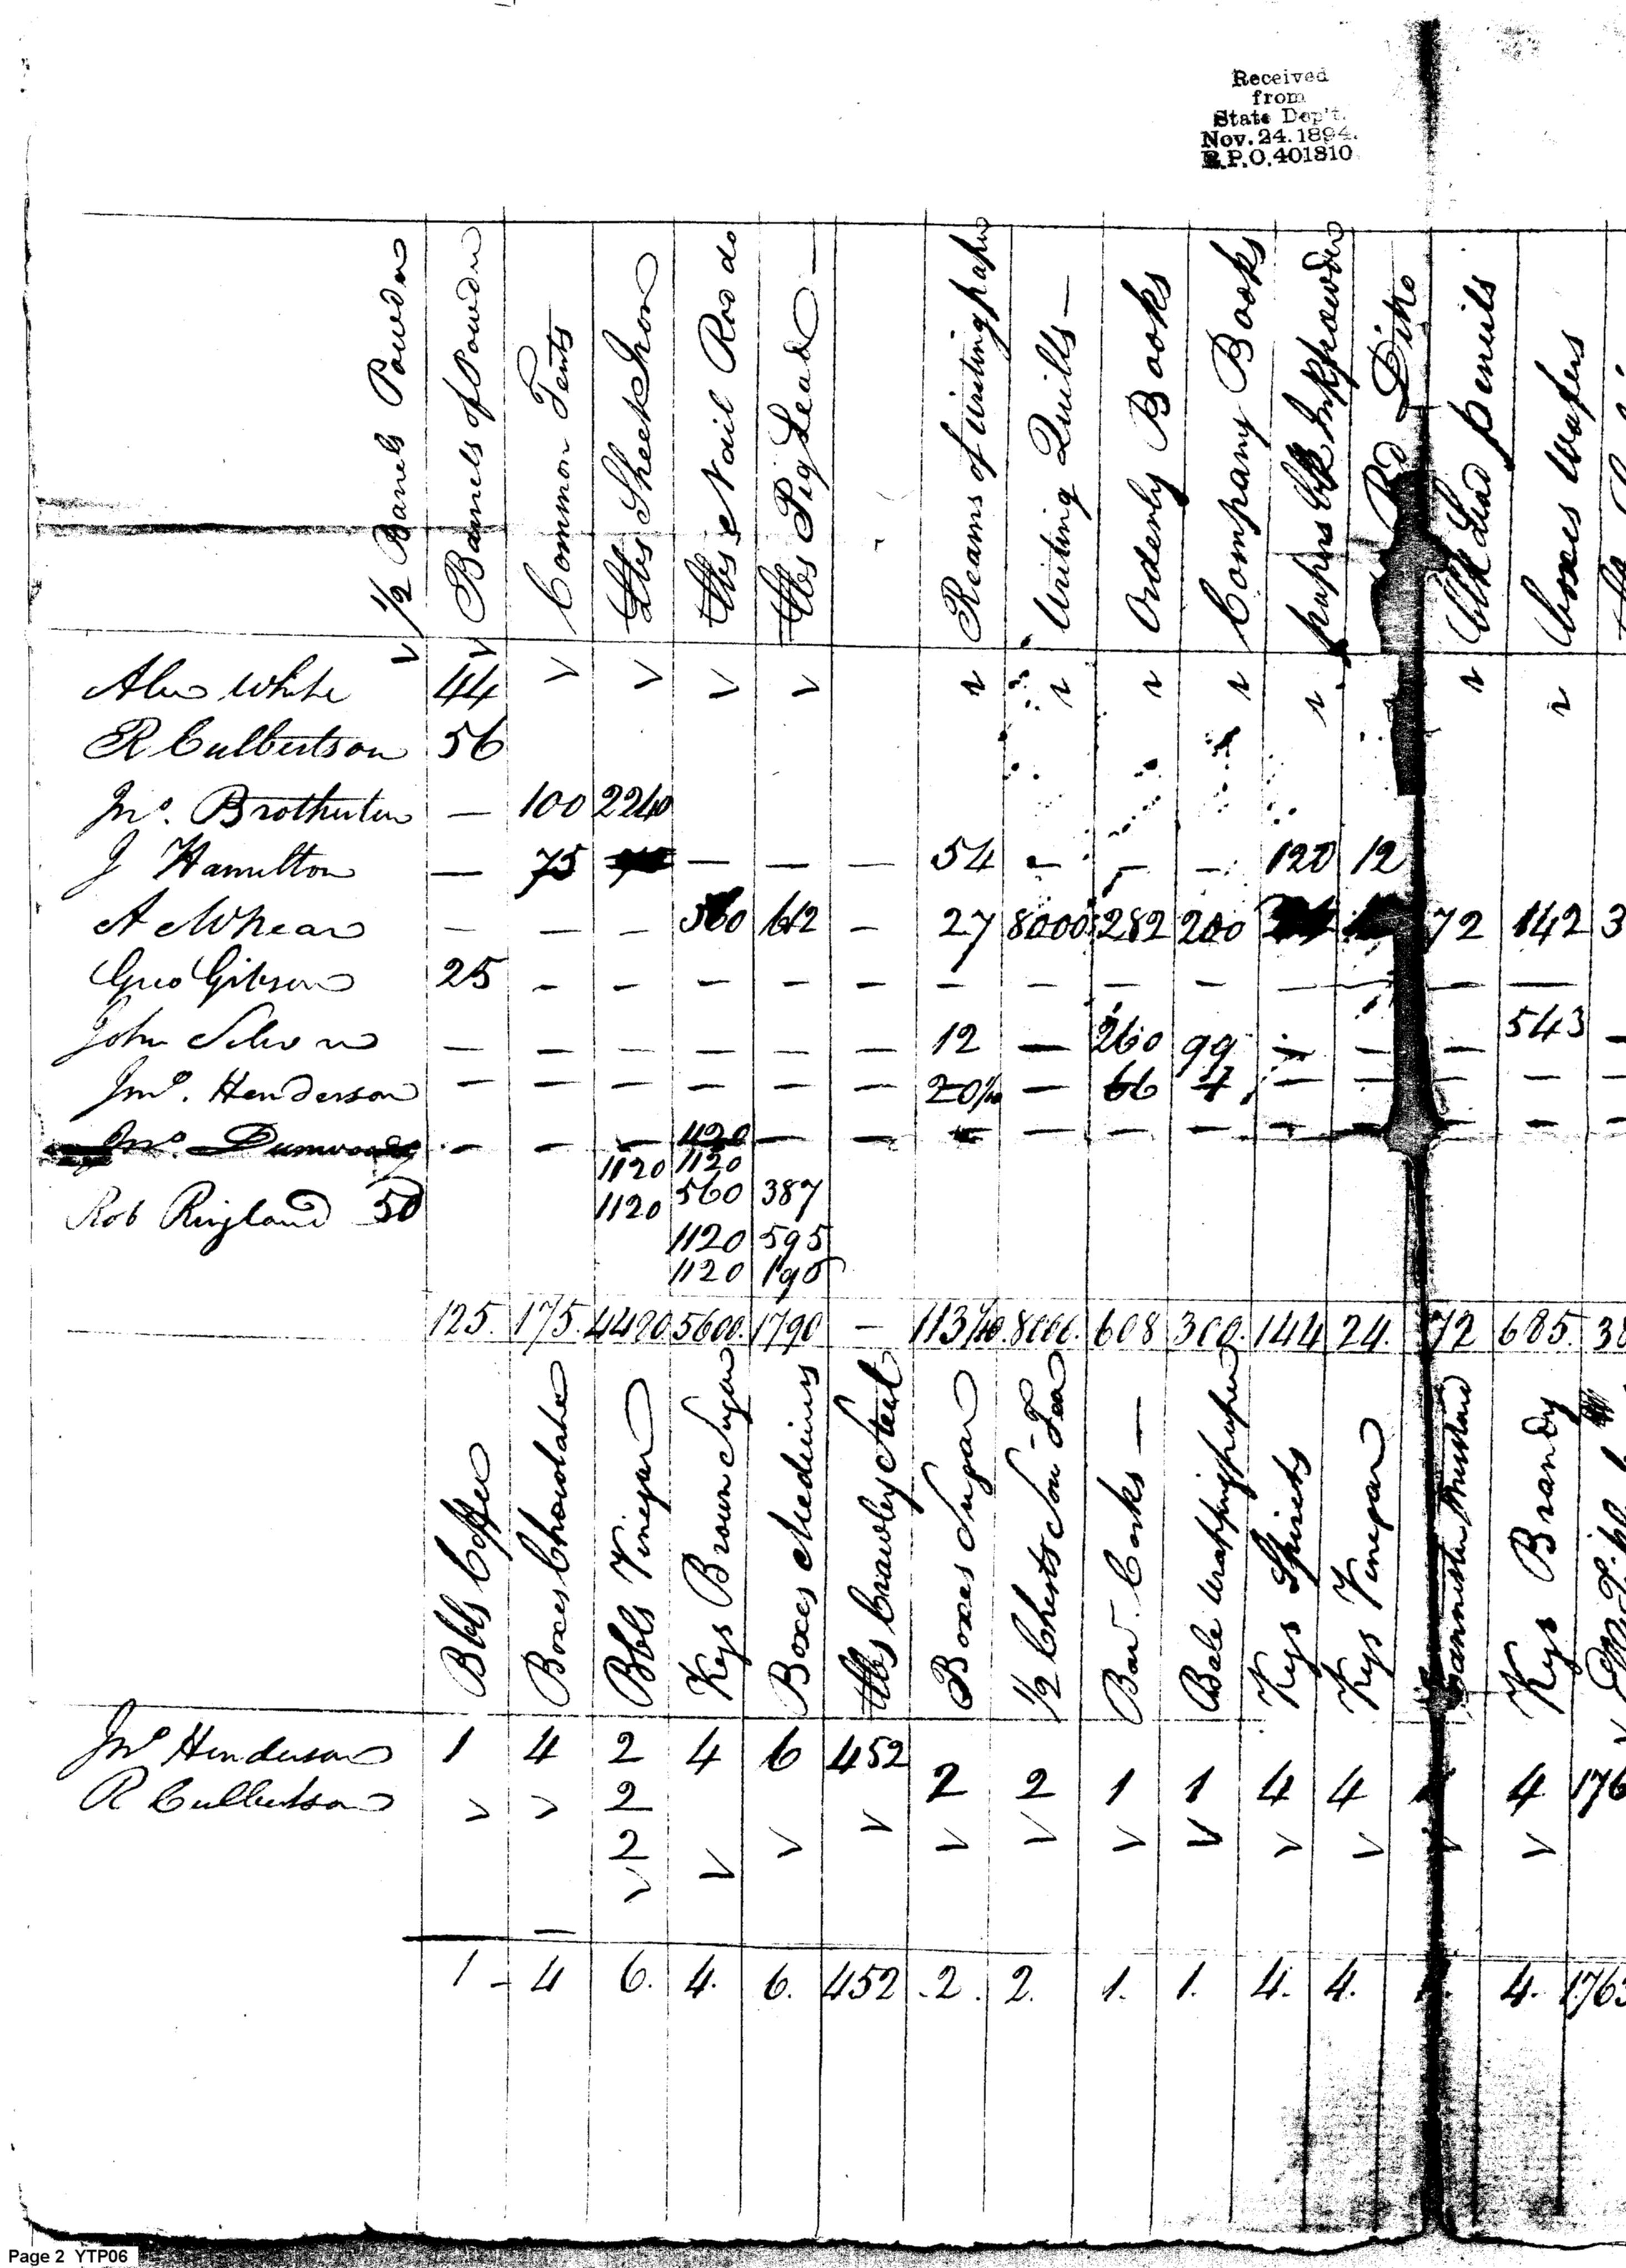 Received
from
State Dep't.
Nov. 24. 1894.
R.P.O. 401810
1/2 Barrels Powder
Barrels of Powder
Common Tents
lbs Sheet Iron
lbs Nail Rods do
lbs Pig Lead —
Reams of writing paper
Writing Quills —
Orderly Books
Company Books
papers blk Ink powder
Rd Ditto
blk Lead pencils
boxes wafers
Alex White 44
R Culbertson 56
Jno. Brotherton — 100 2240
J Hamilton — 75 — — — 54 — — — 120 12
A McWhean — — — 560 612 — 27 8000 282 200 72 142 3
Geo Gibson 25 — — — — — — — — — — — —
John — — — — — — 12 — 260 99 — — — 543 —
Jno. Henderson — — — — — — 20 — 66 1 — — — — —
Jno. Dunwoody — — — 1120 — — — — — — — — — —
1120 1120
Rob Ringland 50 1120 560 387
1120 595
1120 196
125. 175. 4480 5600. 1790 — 113 8000. 608 300. 144 24. 72 685. 38
Bbls Coffee
Boxes Chocolate
Bbls Vinegar
Kegs Brown Sugar
Boxes Medicines
lbs Crawley Steel
Boxes Sugar
1/2 Chests Sou - Tea
Bar. Corks —
Bale wrapping paper
Kegs Spirits
Kegs Vinegar
Cannister Mustard
Kegs Brandy
Jno Henderson 1 4 2 4 6 452 2 2 1 1 4 4 4 176
R Culbertson 2
2
1 - 4 6. 4. 6. 452 . 2 . 2. 1. 1. 4. 4. 4. 1763
Page 2 YTP06